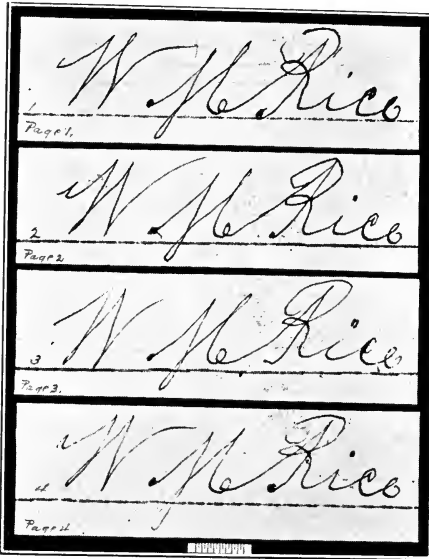 W M Rice
1
Page 1.
W M Rice
2
Page 2
W M Rice
3
Page 3.
W M Rice
4
Page 4